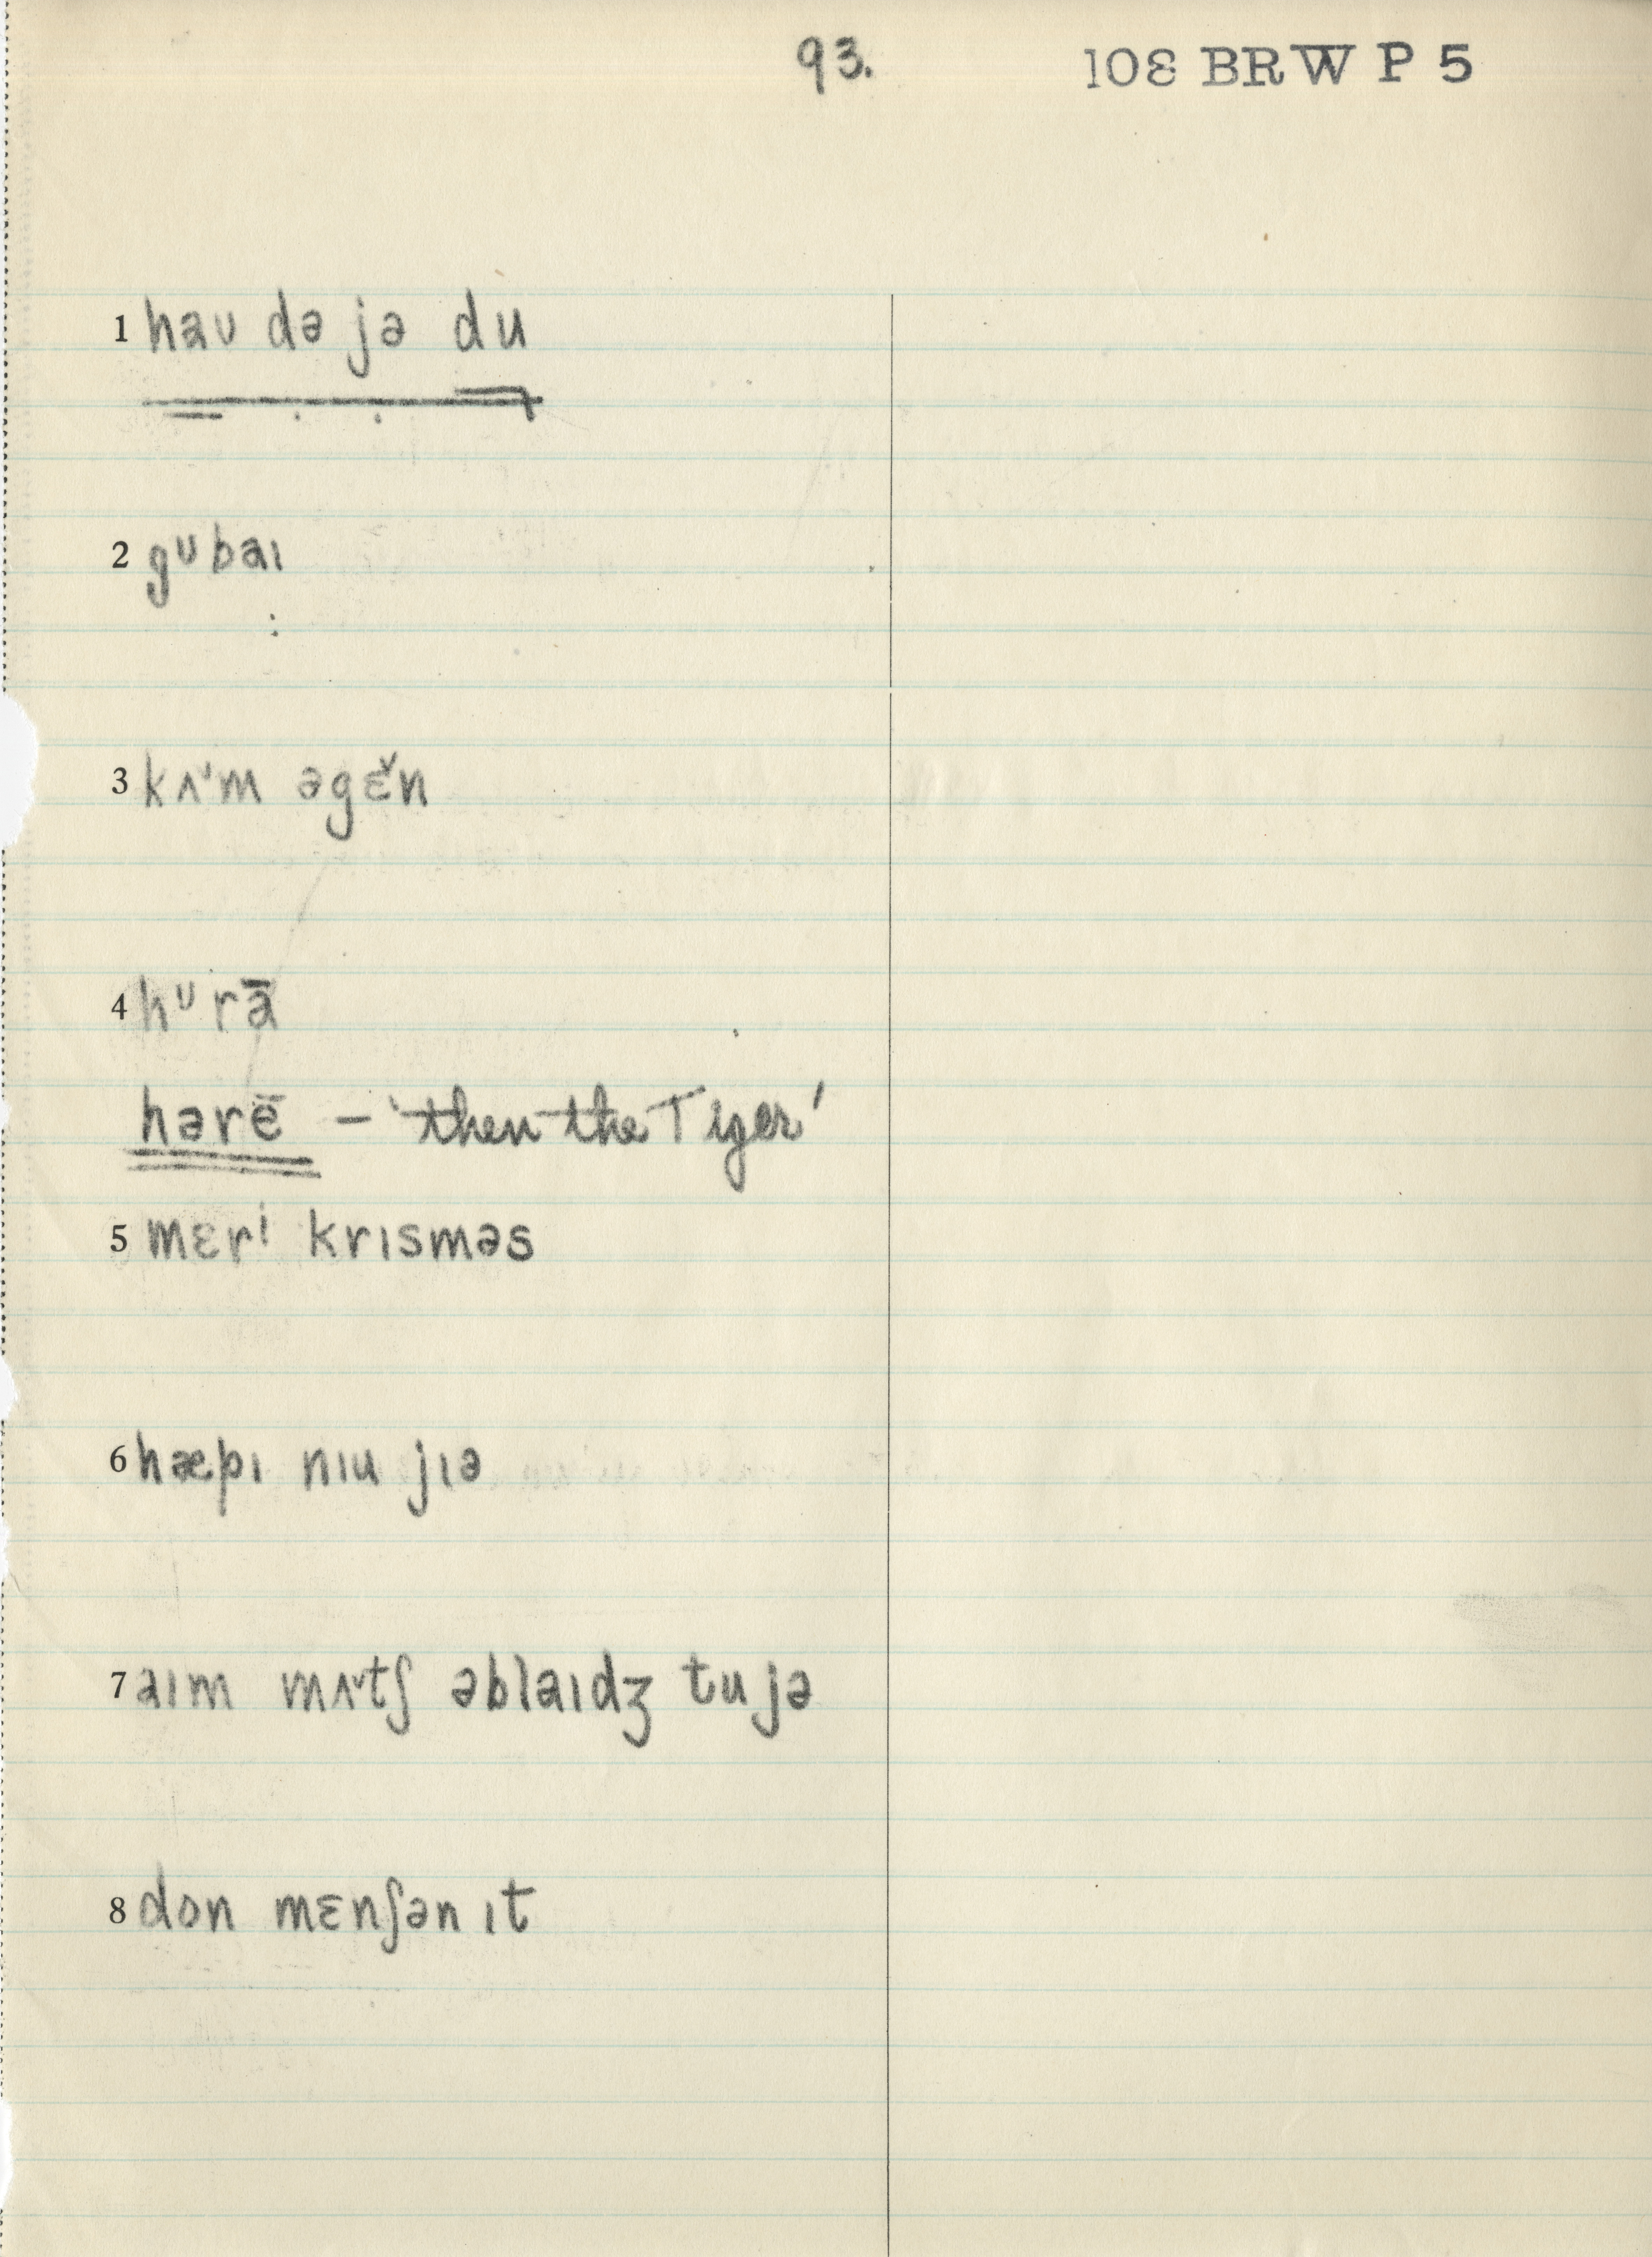 93. 108 BRW P 5
1 hau də jə du
2 gᶷbaɪ
3 kʌ'm əgɛ̌n
4 hᶷrā
hərē – 'then the Tiger'
5 mɛrⁱ krɪsməs
6 hæpɪ nɪu jɪə
7 aɪm mʌˇtʃ əblaɪdʒ tu jə
8 don mɛnʃən ɪt